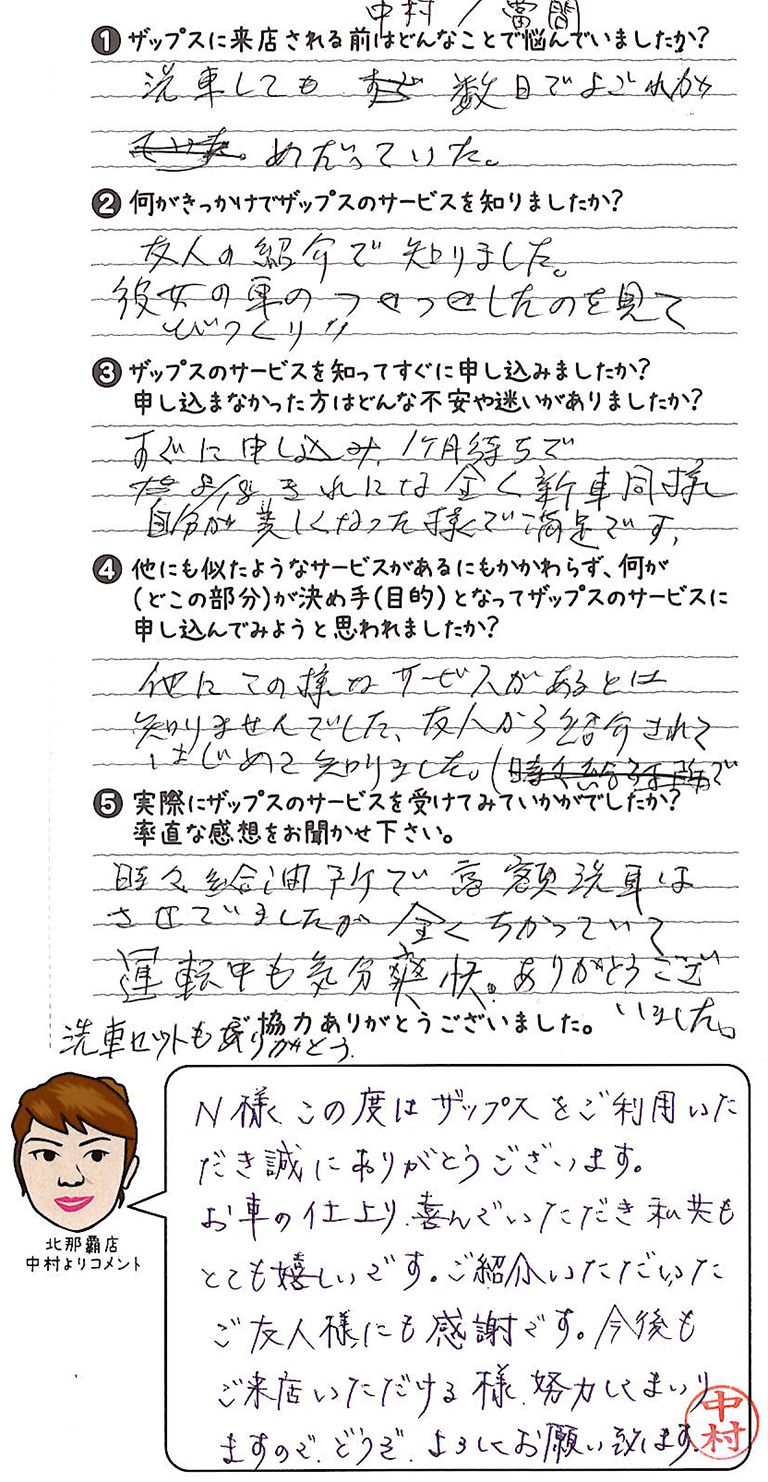 中村 / 當間
❶ ザップスに来店される前はどんなことで悩んでいましたか?
洗車しても 数日でよごれが
めだっていた。
❷ 何がきっかけでザップスのサービスを知りましたか?
友人の紹介で知りました。
彼女の車のつやつやしたのを見て
びっくり!!
❸ ザップスのサービスを知ってすぐに申し込みましたか?
申し込まなかった方はどんな不安や迷いがありましたか?
すぐに申し込み、1ヶ月待ちで
きれいにな 全く新車同様
自分が美しくなった様で満足です。
❹ 他にも似たようなサービスがあるにもかかわらず、何が
(どこの部分)が決め手(目的)となってザップスのサービスに
申し込んでみようと思われましたか?
他にこの様なサービスがあるとは
知りませんでした、友人から紹介されて
はじめて知りました。(
❺ 実際にザップスのサービスを受けてみていかがでしたか?
率直な感想をお聞かせ下さい。
時々給油所で高額洗車は
させていましたが 全くちがっていて
運転中も気分爽快。ありがとうござ
いました。
ご協力ありがとうございました。
洗車セットもありがとう
N様、この度はザップスをご利用いた
だき誠にありがとうございます。
お車の仕上り、喜んでいただき私共も
とても嬉しいです。ご紹介いただいた
ご友人様にも感謝です。今後も
ご来店いただける様、努力してまいり
ますので、どうぞ、よろしくお願い致します
中村
北那覇店
中村よりコメント